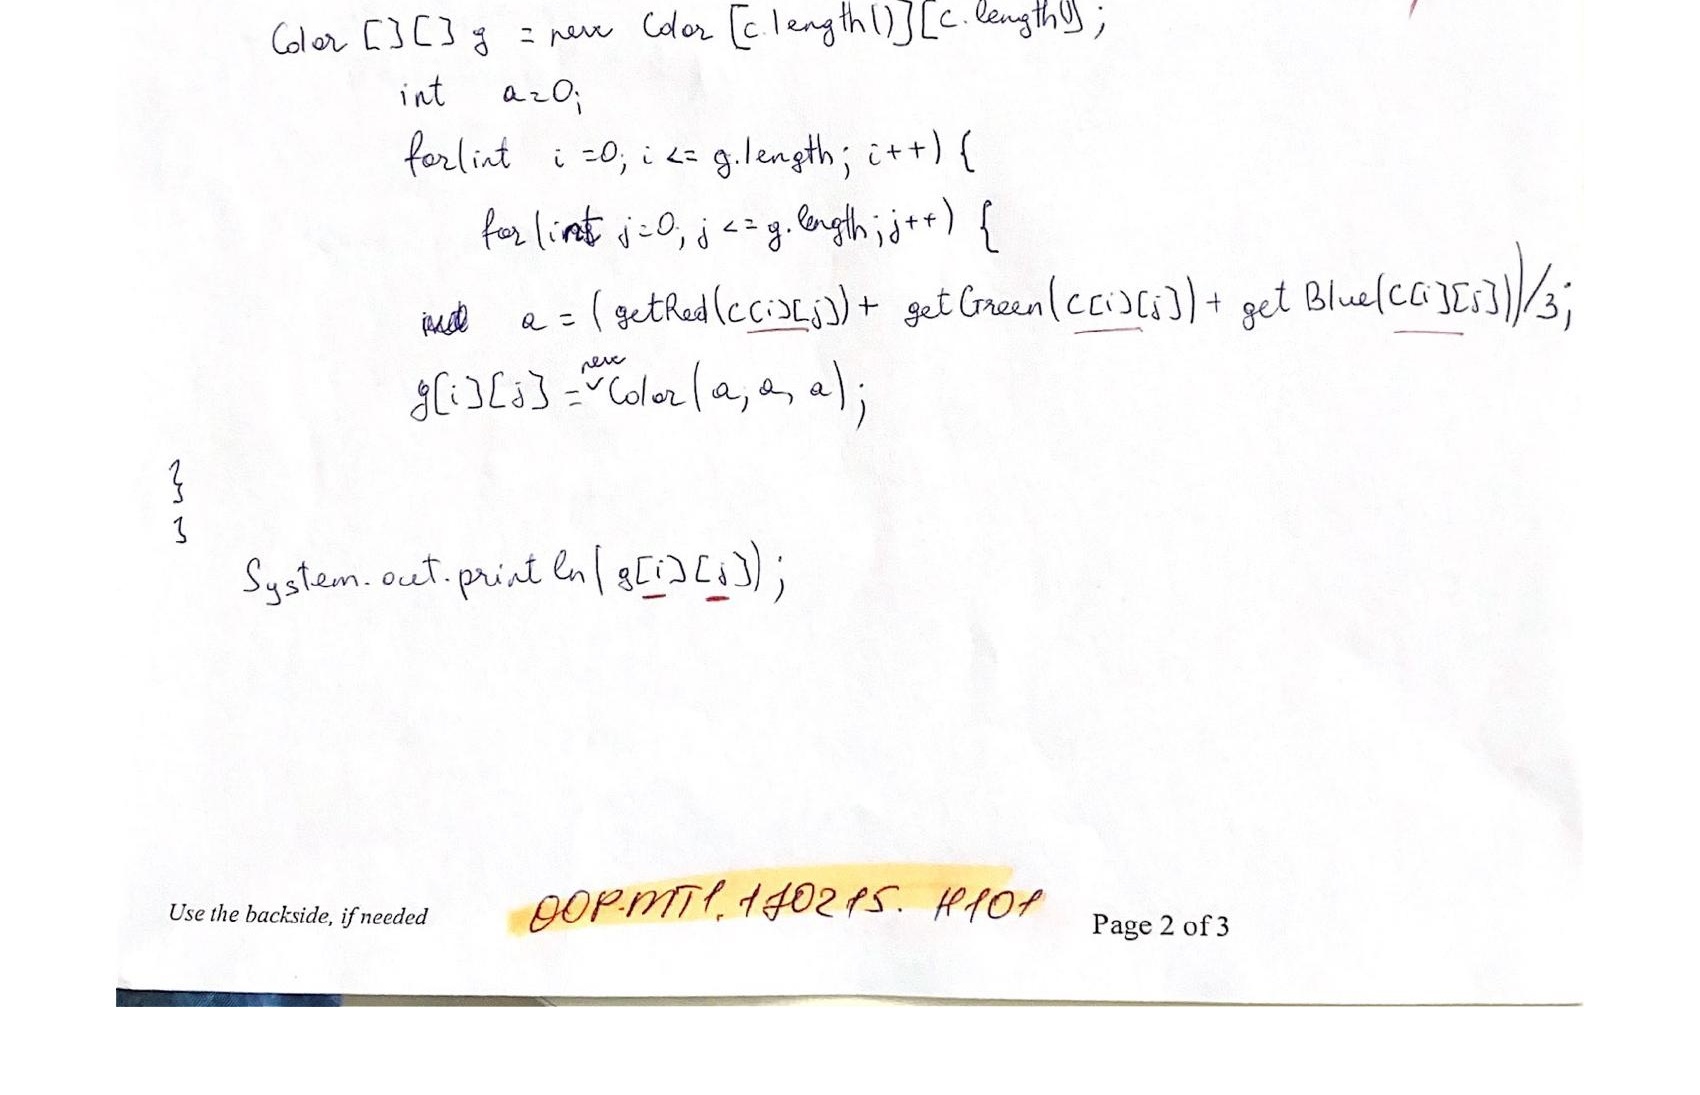 Color [][] g = new Color [c.length()][c.length()];
int a=0;
for(int i=0; i <= g.length; i++) {
for(int j=0; j <= g.length; j++) {
a = (getRed(c[i][j]) + getGreen(c[i][j]) + getBlue(c[i][j]))/3;
g[i][j] = new Color(a, a, a);
}
}
System.out.println(g[i][j]);
Use the backside, if needed
OOP.MT1. 170215. H101
Page 2 of 3